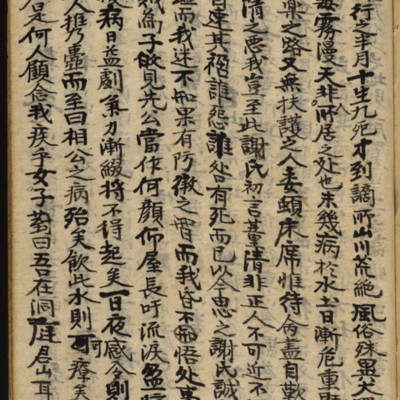 行宅半月十生九死才到謫所山川荒絶風俗殊異大
毒霧漫天非人所居之處也未幾病於水土日漸危重
樂之路又無扶護之人委頓床席惟待命盡自歎
隋之惡我豈至此謝氏初言董隋非正人不可近不
自速其禍誰怨誰咎有死而已以今思之謝氏誠
而我迷不知果有防微之智而我昏不知悟處事
賊爲子敀見先公當作何顔仰屋長吁流淚盈
病日益劇氣力漸綴將不得起矣一日夜感今則
人携壺而至曰相公之病殆矣飲此水則可療矣
是何人顧念我疾乎女子對曰吾在洞庭君山耳